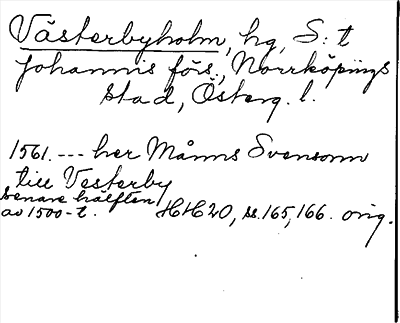 Västerbyholm, hg, S:t
Johannis förs., Norrköpings
stad, Österg. l.
1561. --- her Måns Svensonn
till Vesterby
senare hälften
av 1500-t. HH20, ss. 165, 166. orig.